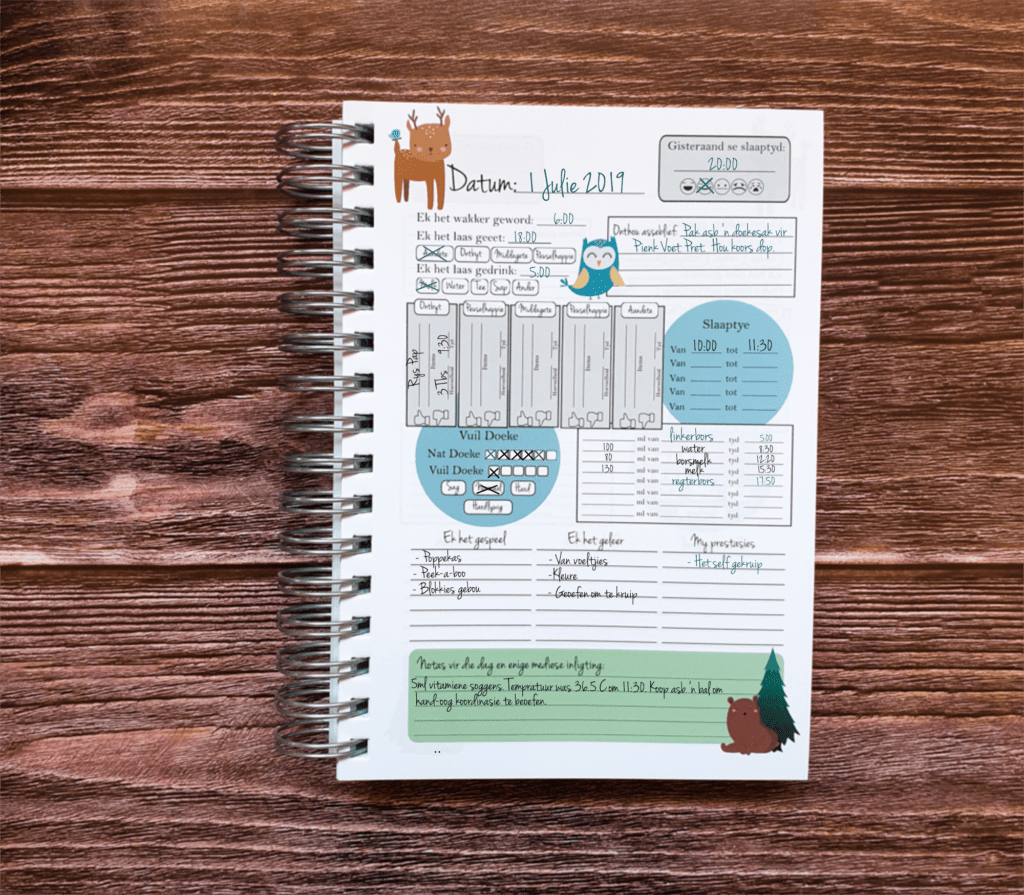 Gisteraand se slaaptyd:
20:00
Datum: 1 Julie 2019
Ek het wakker geword: 6:00
Ek het laas geeet: 18:00
Aandete Ontbyt Middagete Peuselhappie
Ek het laas gedrink: 5:00
Melk Water Tee Sap Ander
Onthou asseblief: Pak asb 'n doekesak vir
Pienk Voet Pret. Hou koors dop.
Ontbyt Peuselhappie Middagete Peuselhappie Aandete
Rys Pap
Items
9:30
Tyd
3 Tbs
Hoeveelheid
Items
Tyd
Hoeveelheid
Items
Tyd
Hoeveelheid
Items
Tyd
Hoeveelheid
Items
Tyd
Hoeveelheid
Slaaptye
Van 10:00 tot 11:30
Van tot
Van tot
Van tot
Van tot
Vuil Doeke
Nat Doeke
Vuil Doeke
Sag Hard
Hardlywig
ml van linkerbors tyd 5:00
100 ml van water tyd 8:30
80 ml van borsmelk tyd 12:20
130 ml van melk tyd 15:30
ml van regterbors tyd 17:50
ml van tyd
ml van tyd
ml van tyd
Ek het gespeel
- Poppekas
- Peek-a-boo
- Blokkies gebou
Ek het geleer
- Van voeltjies
- Kleure
- Geoefen om te kruip
My prestasies
- Het self gekruip
Notas vir die dag en enige mediese inligting:
5ml vitamiene soggens. Tempratuur was 36.5 C om 11:30. Koop asb 'n bal om
hand-oog koordinasie te beoefen.